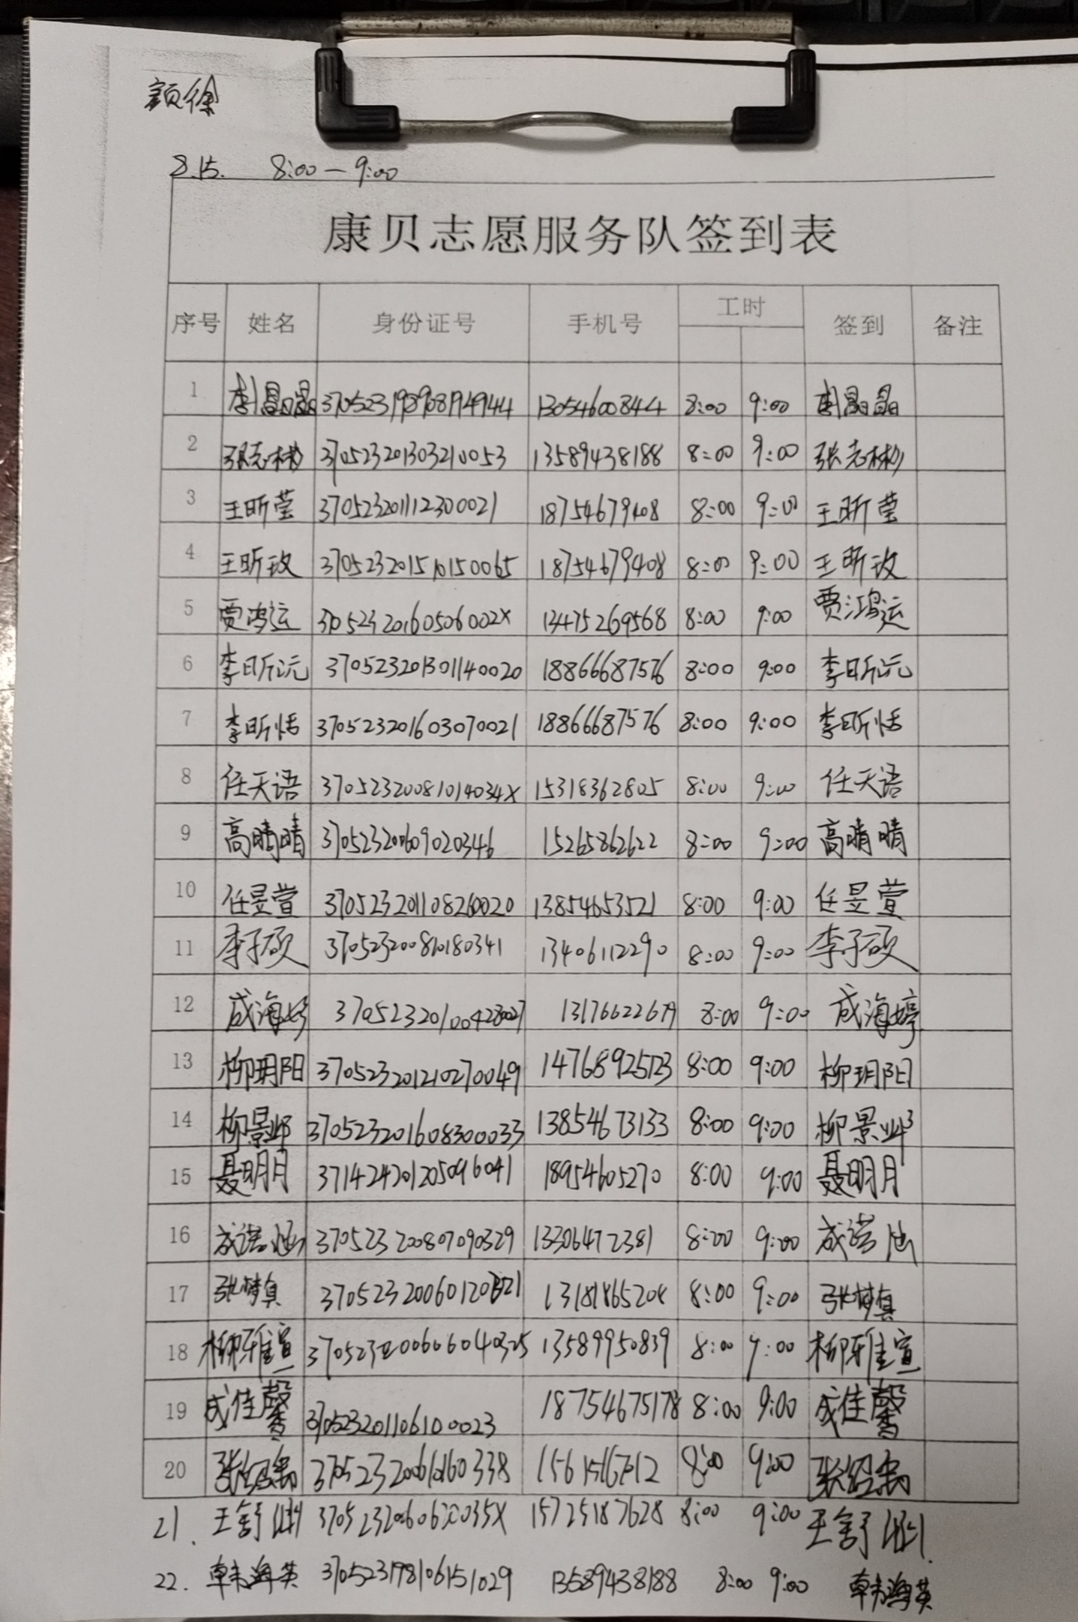 8.15. 8:00—9:00
康贝志愿服务队签到表
序号 姓名 身份证号 手机号 工时 签到 备注
1 李晶晶 13054600844 8:00 9:00 李晶晶
2 张志彬 370523201303210053 13589438188 8:00 9:00 张志彬
3 王昕莹 370523201112300021 18754679408 8:00 9:00 王昕莹
4 王昕玫 370523201510150065 18754679408 8:00 9:00 王昕玫
5 贾鸿运 37052320160506002X 13475269568 8:00 9:00 贾鸿运
6 李昕沅 370523201301140020 18866687576 8:00 9:00 李昕沅
7 李昕恬 370523201603070021 18866687576 8:00 9:00 李昕恬
8 任天语 37052320081014034X 15318362805 8:00 9:00 任天语
9 高晴晴 370523200609020346 15265862622 8:00 9:00 高晴晴
10 任昱萱 370523201108260020 13854653521 8:00 9:00 任昱萱
11 李子硕 370523200810180341 13406112290 8:00 9:00 李子硕
12 成海婷 370523201004280027 13176622679 8:00 9:00 成海婷
13 柳玥阳 370523201210270049 14768925723 8:00 9:00 柳玥阳
14 柳景 370523201608300033 13854673133 8:00 9:00 柳景
15 聂明月 371424201205096041 18954605270 8:00 9:00 聂明月
16 成诺涵 370523200807090329 13306472381 8:00 9:00 成诺涵
17 张梦真 8:00 9:00 张梦真
18 柳雅萱 370523200606040325 13589950839 8:00 9:00 柳雅萱
19 成佳馨 370523201106100023 18754675178 8:00 9:00 成佳馨
20 8:00 9:00
21. 王舒 15725187628 8:00 9:00 王舒
22. 韩海英 370523198106151029 13589438188 8:00 9:00 韩海英